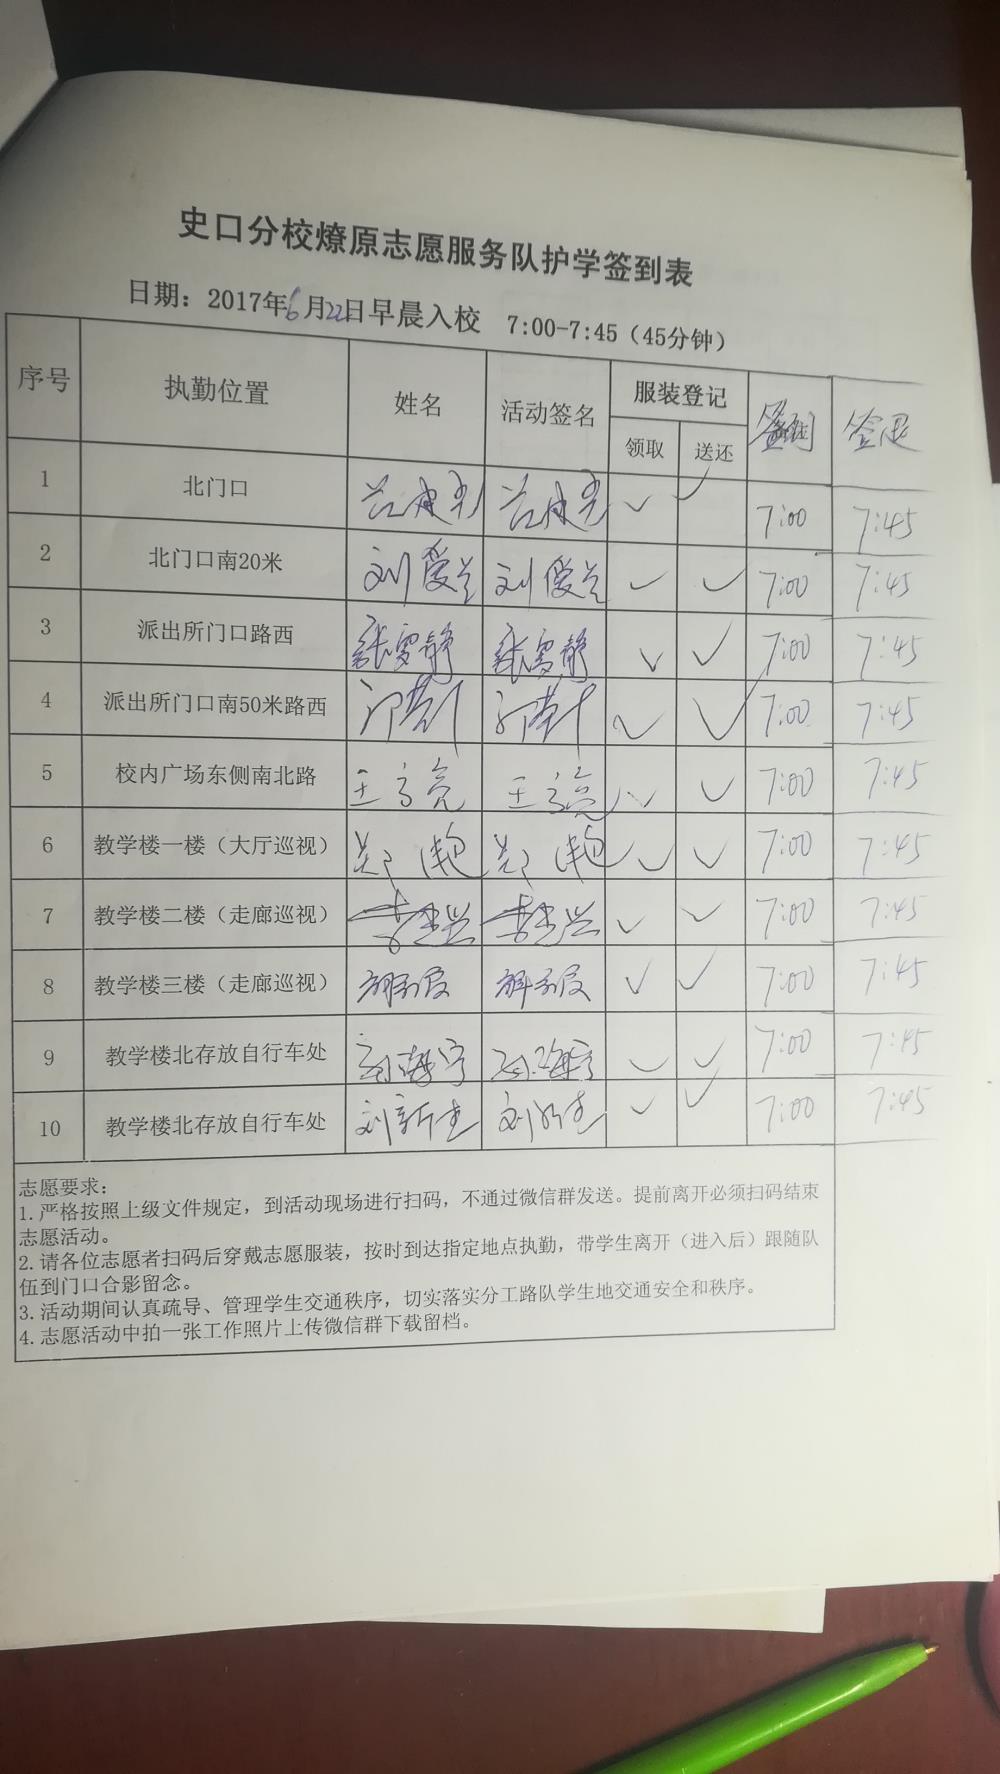 史口分校燎原志愿服务队护学签到表
日期：2017年6月22日早晨入校 7:00-7:45（45分钟）
序号 执勤位置 姓名 活动签名 服装登记 签到 签退
领取 送还
1 北门口 ✓ ✓ 7:00 7:45
2 北门口南20米 刘爱兰 刘爱兰 ✓ ✓ 7:00 7:45
3 派出所门口路西 张雪静 张雪静 ✓ ✓ 7:00 7:45
4 派出所门口南50米路西 ✓ ✓ 7:00 7:45
5 校内广场东侧南北路 王方亮 王方亮 ✓ ✓ 7:00 7:45
6 教学楼一楼（大厅巡视） 郑艳 郑艳 ✓ ✓ 7:00 7:45
7 教学楼二楼（走廊巡视） ✓ ✓ 7:00 7:45
8 教学楼三楼（走廊巡视） ✓ ✓ 7:00 7:45
9 教学楼北存放自行车处 ✓ ✓ 7:00 7:45
10 教学楼北存放自行车处 刘新生 刘新生 ✓ ✓ 7:00 7:45
志愿要求：
1.严格按照上级文件规定，到活动现场进行扫码，不通过微信群发送。提前离开必须扫码结束
志愿活动。
2.请各位志愿者扫码后穿戴志愿服装，按时到达指定地点执勤，带学生离开（进入后）跟随队
伍到门口合影留念。
3.活动期间认真疏导、管理学生交通秩序，切实落实分工路队学生地交通安全和秩序。
4.志愿活动中拍一张工作照片上传微信群下载留档。